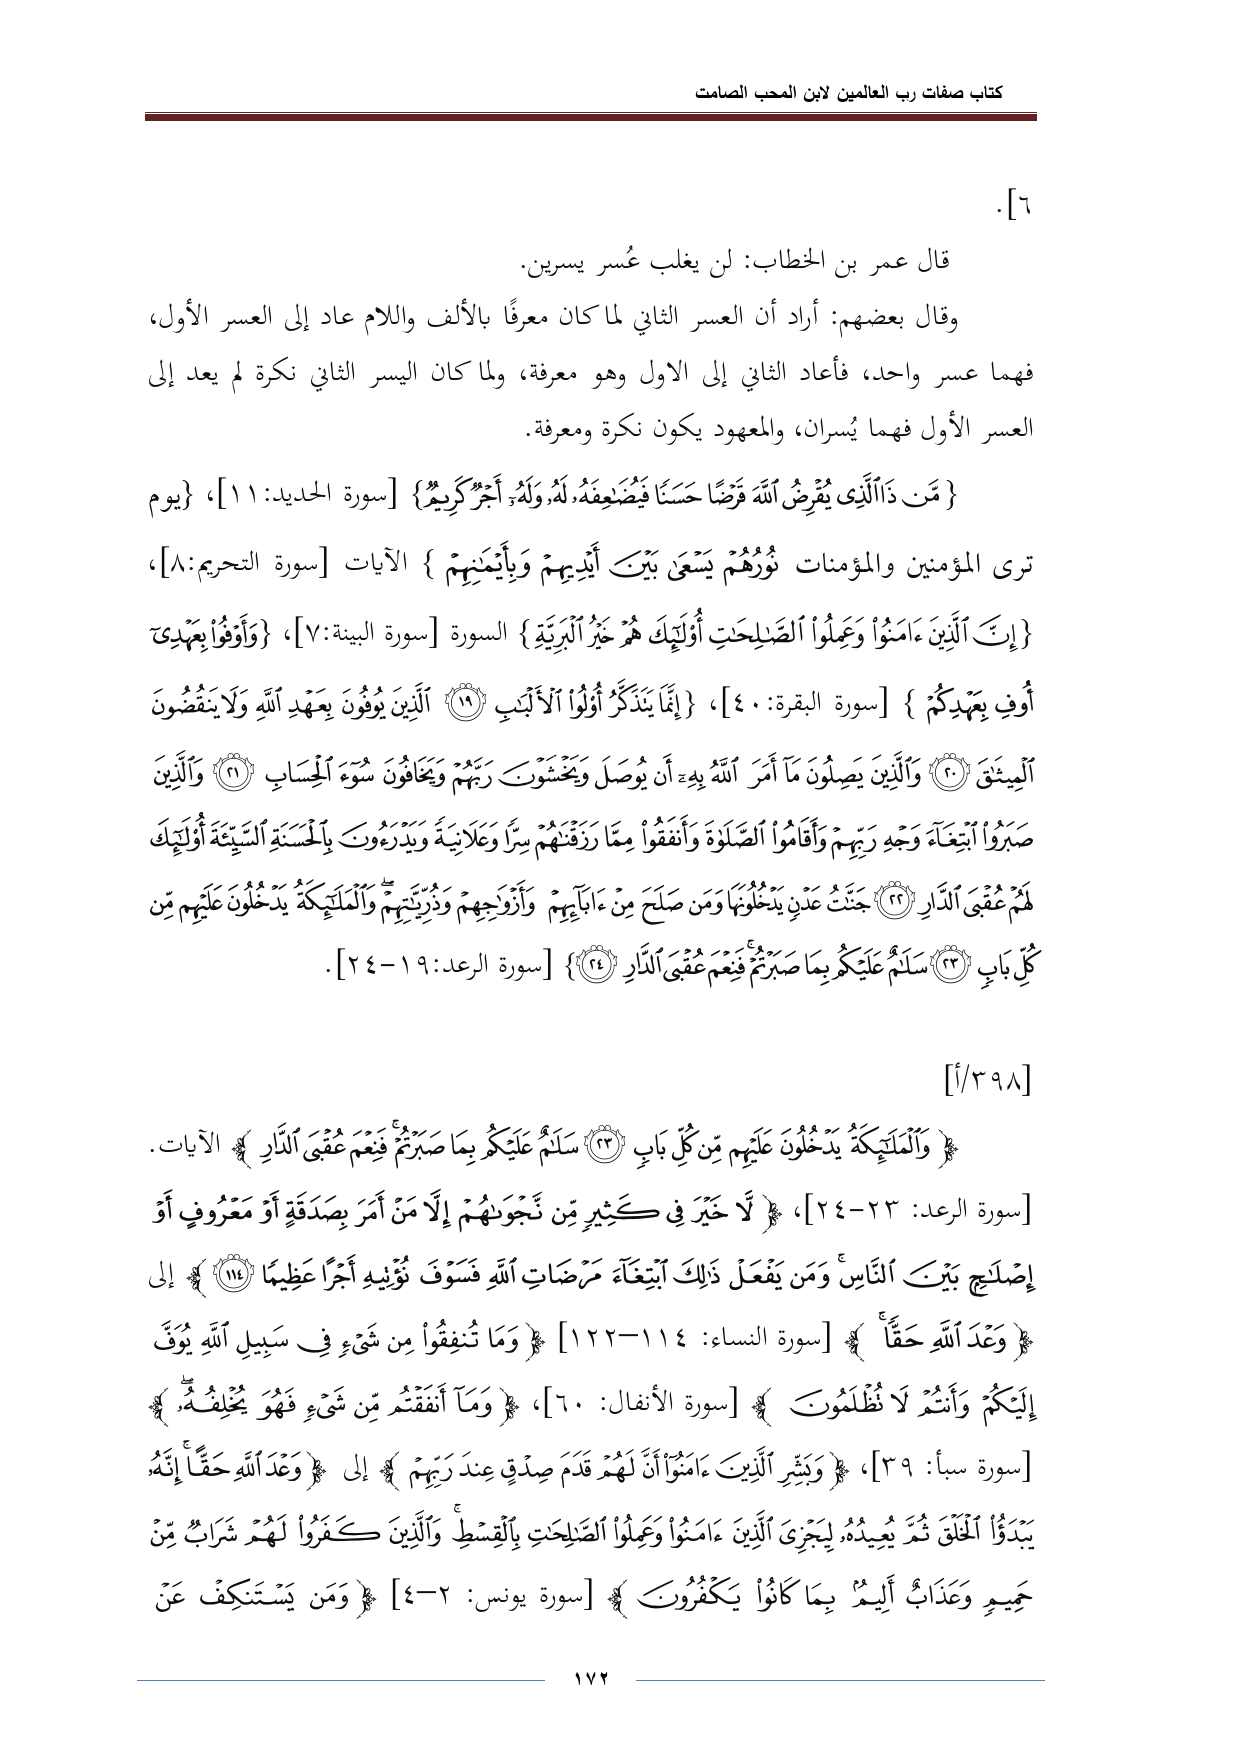 كتاب صفات رب العالمين لابن المحب الصامت
٦].
قال عمر بن الخطاب: لن يغلب عُسر يسرين.
وقال بعضهم: أراد أن العسر الثاني لما كان معرفًا بالألف واللام عاد إلى العسر الأول،
فهما عسر واحد، فأعاد الثاني إلى الاول وهو معرفة، ولما كان اليسر الثاني نكرة لم يعد إلى
العسر الأول فهما يُسران، والمعهود يكون نكرة ومعرفة.
{ مَّن ذَا ٱلَّذِى يُقْرِضُ ٱللَّهَ قَرْضًا حَسَنًا فَيُضَٰعِفَهُۥ لَهُۥ وَلَهُۥٓ أَجْرٌ كَرِيمٌ} [سورة الحديد:١١]، {يوم
ترى المؤمنين والمؤمنات نُورُهُمْ يَسْعَىٰ بَيْنَ أَيْدِيهِمْ وَبِأَيْمَٰنِهِمْ } الآيات [سورة التحريم:٨]،
{إِنَّ ٱلَّذِينَ ءَامَنُوا۟ وَعَمِلُوا۟ ٱلصَّٰلِحَٰتِ أُو۟لَٰٓئِكَ هُمْ خَيْرُ ٱلْبَرِيَّةِ} السورة [سورة البينة:٧]، {وَأَوْفُوا۟ بِعَهْدِىٓ
أُوفِ بِعَهْدِكُمْ } [سورة البقرة:٤٠]، {إِنَّمَا يَتَذَكَّرُ أُو۟لُوا۟ ٱلْأَلْبَٰبِ ١٩ ٱلَّذِينَ يُوفُونَ بِعَهْدِ ٱللَّهِ وَلَا يَنقُضُونَ
ٱلْمِيثَٰقَ ٢٠ وَٱلَّذِينَ يَصِلُونَ مَآ أَمَرَ ٱللَّهُ بِهِۦٓ أَن يُوصَلَ وَيَخْشَوْنَ رَبَّهُمْ وَيَخَافُونَ سُوٓءَ ٱلْحِسَابِ ٢١ وَٱلَّذِينَ
صَبَرُوا۟ ٱبْتِغَآءَ وَجْهِ رَبِّهِمْ وَأَقَامُوا۟ ٱلصَّلَوٰةَ وَأَنفَقُوا۟ مِمَّا رَزَقْنَٰهُمْ سِرًّا وَعَلَانِيَةً وَيَدْرَءُونَ بِٱلْحَسَنَةِ ٱلسَّيِّئَةَ أُو۟لَٰٓئِكَ
لَهُمْ عُقْبَى ٱلدَّارِ ٢٢ جَنَّٰتُ عَدْنٍ يَدْخُلُونَهَا وَمَن صَلَحَ مِنْ ءَابَآئِهِمْ وَأَزْوَٰجِهِمْ وَذُرِّيَّٰتِهِمْ ۖ وَٱلْمَلَٰٓئِكَةُ يَدْخُلُونَ عَلَيْهِم مِّن
كُلِّ بَابٍ ٢٣ سَلَٰمٌ عَلَيْكُم بِمَا صَبَرْتُمْ ۚ فَنِعْمَ عُقْبَى ٱلدَّارِ ٢٤} [سورة الرعد:١٩-٢٤].
[٣٩٨/أ]
﴿ وَٱلْمَلَٰٓئِكَةُ يَدْخُلُونَ عَلَيْهِم مِّن كُلِّ بَابٍ ٢٣ سَلَٰمٌ عَلَيْكُم بِمَا صَبَرْتُمْ ۚ فَنِعْمَ عُقْبَى ٱلدَّارِ ﴾ الآيات.
[سورة الرعد: ٢٣-٢٤]، ﴿ لَّا خَيْرَ فِى كَثِيرٍ مِّن نَّجْوَىٰهُمْ إِلَّا مَنْ أَمَرَ بِصَدَقَةٍ أَوْ مَعْرُوفٍ أَوْ
إِصْلَٰحٍۭ بَيْنَ ٱلنَّاسِ ۚ وَمَن يَفْعَلْ ذَٰلِكَ ٱبْتِغَآءَ مَرْضَاتِ ٱللَّهِ فَسَوْفَ نُؤْتِيهِ أَجْرًا عَظِيمًا ١١٤ ﴾ إلى
﴿ وَعْدَ ٱللَّهِ حَقًّا ۚ ﴾ [سورة النساء: ١١٤—١٢٢] ﴿ وَمَا تُنفِقُوا۟ مِن شَىْءٍ فِى سَبِيلِ ٱللَّهِ يُوَفَّ
إِلَيْكُمْ وَأَنتُمْ لَا تُظْلَمُونَ ﴾ [سورة الأنفال: ٦٠]، ﴿ وَمَآ أَنفَقْتُم مِّن شَىْءٍ فَهُوَ يُخْلِفُهُۥ ۖ ﴾
[سورة سبأ: ٣٩]، ﴿ وَبَشِّرِ ٱلَّذِينَ ءَامَنُوٓا۟ أَنَّ لَهُمْ قَدَمَ صِدْقٍ عِندَ رَبِّهِمْ ﴾ إلى ﴿ وَعْدَ ٱللَّهِ حَقًّا ۚ إِنَّهُۥ
يَبْدَؤُا۟ ٱلْخَلْقَ ثُمَّ يُعِيدُهُۥ لِيَجْزِىَ ٱلَّذِينَ ءَامَنُوا۟ وَعَمِلُوا۟ ٱلصَّٰلِحَٰتِ بِٱلْقِسْطِ ۚ وَٱلَّذِينَ كَفَرُوا۟ لَهُمْ شَرَابٌ مِّنْ
حَمِيمٍ وَعَذَابٌ أَلِيمٌۢ بِمَا كَانُوا۟ يَكْفُرُونَ ﴾ [سورة يونس: ٢—٤] ﴿ وَمَن يَسْتَنكِفْ عَنْ
١٧٢